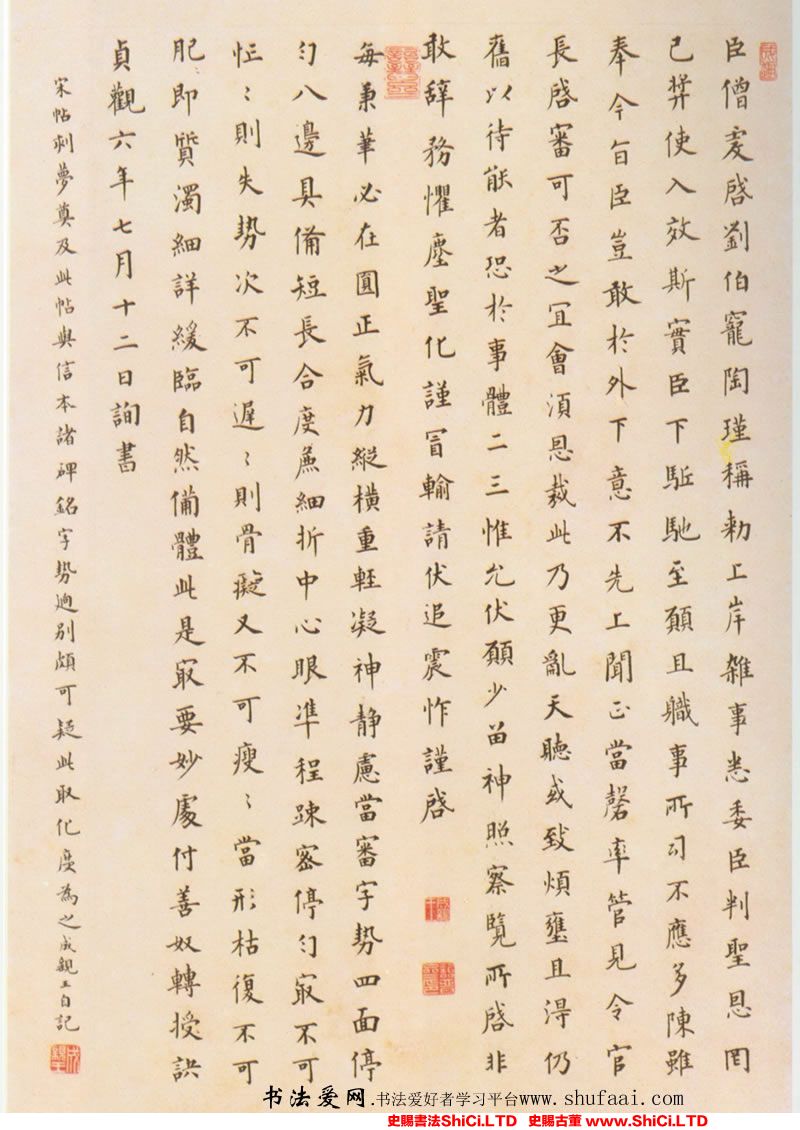 臣僧虔啓劉伯寵陶瑾稱勅上岸雜事悉委臣判聖恩罔
已弉使入效斯實臣下駈馳至願且職事所司不應多陳雖
奉今旨臣豈敢於外下意不先上聞正當罄率管見令官
長啓審可否之宜會須恩裁此乃更亂天聽或致煩壅且淂仍
舊以待能者恐於事體二三惟允伏願少留神照察覽所啓非
敢辞務懼塵聖化謹冒輸請伏追震怍謹啓
每秉筆必在圓正氣力縱橫重輕凝神静慮當審字勢四面停
匀八邊具備短長合度麁細折中心眼准程踈密停匀寂不可
忙〻則失勢次不可遲〻則骨癡又不可瘦〻當形枯復不可
肥〻即質濁細詳緩臨自然備體此是寂要妙處付善奴轉授訣
貞觀六年七月十二日詢書
宋帖刺夢奠及此帖與信本諸碑銘字勢逈别頗可疑此取化度為之成親王自記
书法爱网.书法爱好者学习平台www.shufaai.com
史賜書法ShiCi.LTD 史賜古董 www.ShiCi.LTD